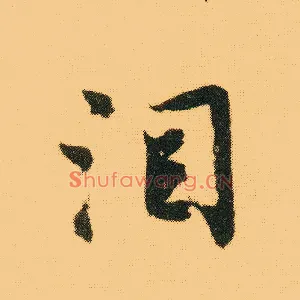 洵
Shufawang.CN